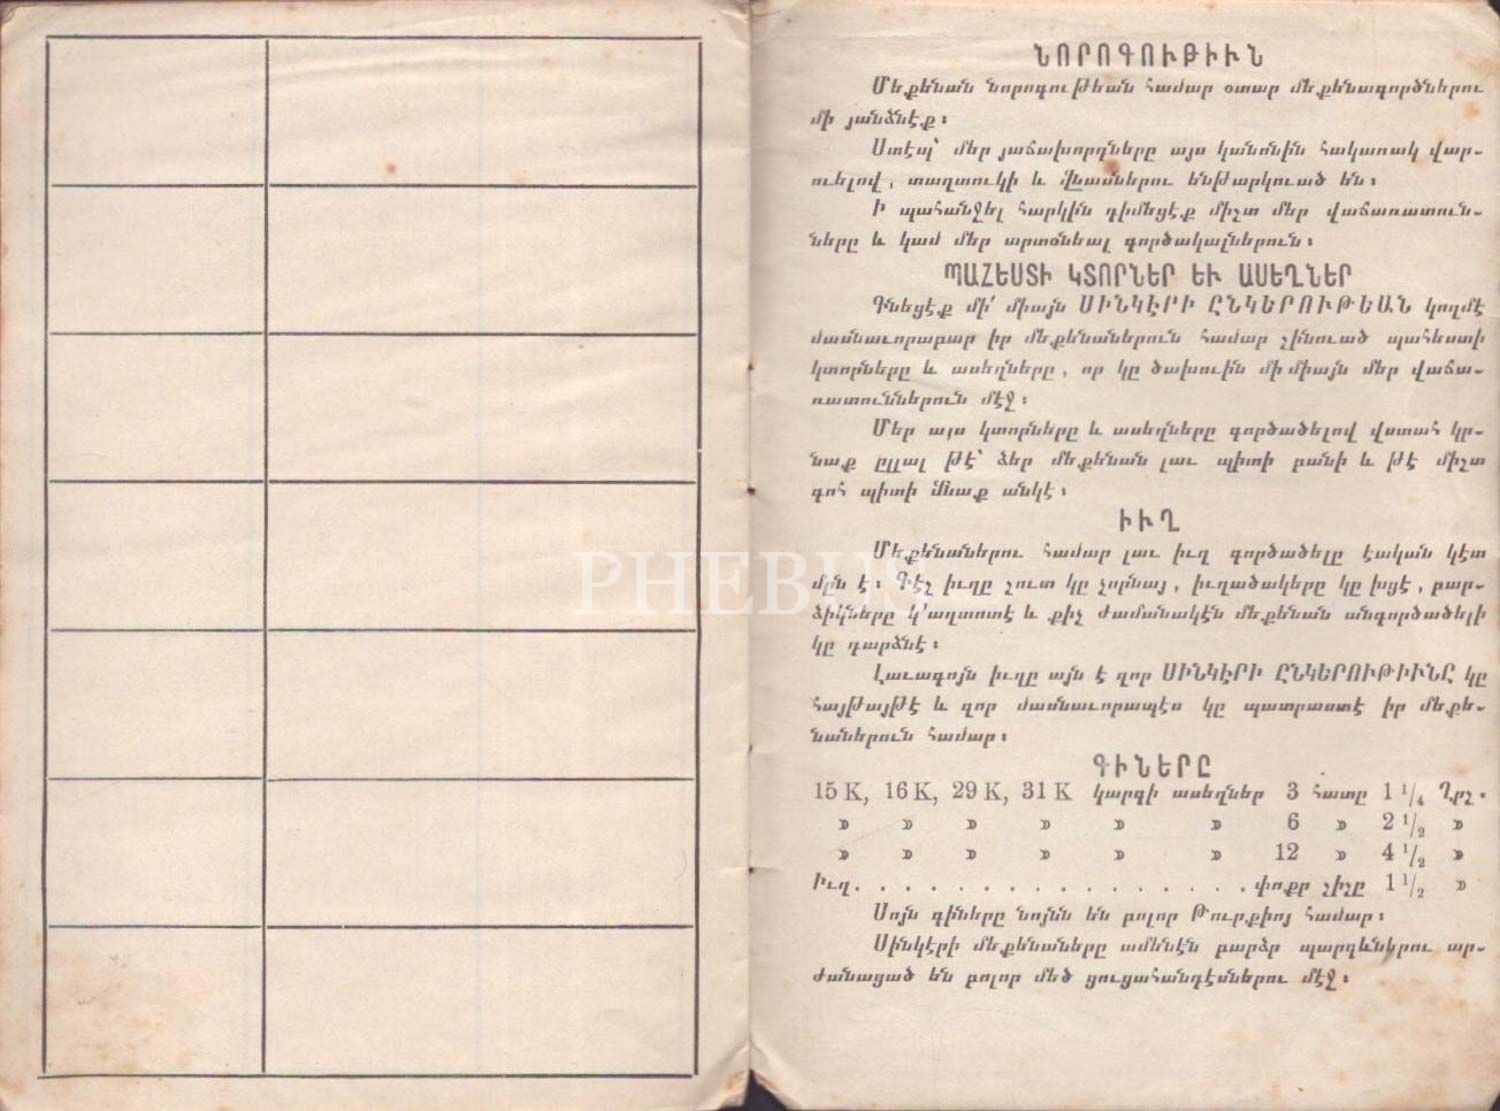 ՆՈՐՈԳՈՒԹԻՒՆ
Մեքենան նորոգութեան համար օտար մեքենագործներու
մի յանձնէք։
Ստէպ՝ մեր յաճախորդները այս կանոնին հակառակ վար-
ուելով, տաղտուկի և վնասներու ենթարկուած են։
Ի պահանջել հարկին դիմեցէք միշտ մեր վաճառատուն-
ները և կամ մեր արտօնեալ գործակալներուն։
ՊԱՀԵՍՏԻ ԿՏՈՐՆԵՐ ԵՒ ԱՍԵՂՆԵՐ
Գնեցէք մի՛ միայն ՍԻՆԿԷՐԻ ԸՆԿԵՐՈՒԹԵԱՆ կողմէ
մասնաւորաբար իր մեքենաներուն համար շինուած պահեստի
կտորները և ասեղները, որ կը ծախուին մի միայն մեր վաճա-
ռատուններուն մէջ։
Մեր այս կտորները և ասեղները գործածելով վստահ կր-
նաք ըլլալ թէ՝ ձեր մեքենան լաւ պիտի բանի և թէ միշտ
գոհ պիտի մնաք անկէ։
ԻՒՂ
Մեքենաներու համար լաւ իւղ գործածելը էական կէտ
մըն է։ Գէշ իւղը շուտ կը չորնայ, իւղածակերը կը խցէ, բար-
ձիկները կ՚աղտոտէ և քիչ ժամանակէն մեքենան անգործածելի
կը դարձնէ։
Լաւագոյն իւղը այն է զոր ՍԻՆԿԷՐԻ ԸՆԿԵՐՈՒԹԻՒՆԸ կը
հայթայթէ և զոր մասնաւորապէս կը պատրաստէ իր մեքե-
նաներուն համար։
ԳԻՆԵՐԸ
15 K, 16 K, 29 K, 31 K կարգի ասեղներ 3 հատը 1 1/4 Ղրշ.
» » » » » » 6 » 2 1/2 »
» » » » » » 12 » 4 1/2 »
Իւղ. . . . . . . . . . . . . . . . . փոքր շիշը 1 1/2 »
Սոյն գիները նոյնն են բոլոր Թուրքիոյ համար։
Սինկէրի մեքենաները ամենէն բարձր պարգեւներու ար-
ժանացած են բոլոր մեծ ցուցահանդէսներու մէջ։
PHEBUS